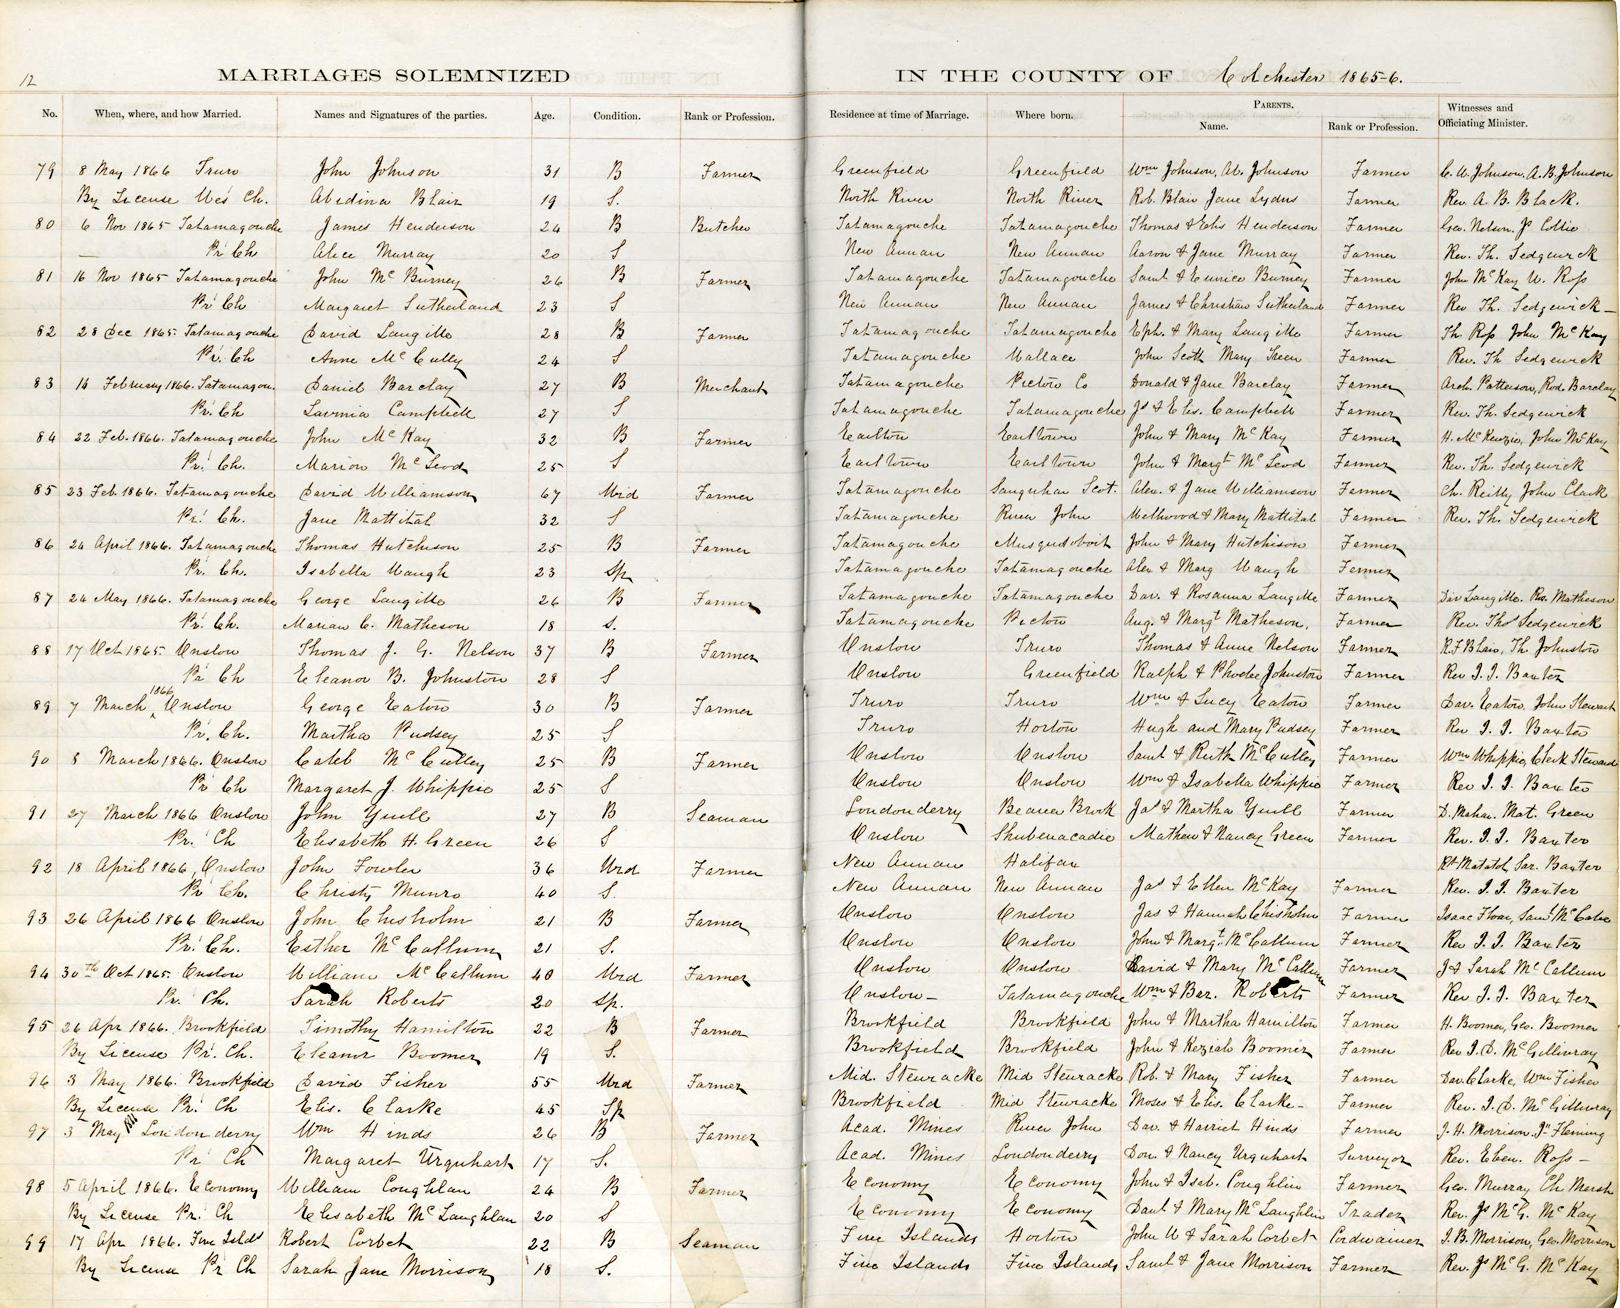 12
MARRIAGES SOLEMNIZED IN THE COUNTY OF Colchester 1865-6.
No. When, where, and how Married. Names and Signatures of the parties. Age. Condition. Rank or Profession. Residence at time of Marriage. Where born. PARENTS. Name. Rank or Profession. Witnesses and Officiating Minister.
79 8 May 1866 Truro John Johnson 31 B Farmer Greenfield Greenfield Wm Johnson, Johnson Farmer C. W. Johnson, A. B. Johnson
By License Wes Ch. Abidina Blair 19 S. North River North River Rob. Blair Jane Lydns Farmer Rev. A. B. Black.
80 6 Nov 1865 Tatamagouche James Henderson 24 B Butcher Tatamagouche Tatamagouche Thomas & Elis Henderson Farmer Geo. Nelson, Js Collie
Pr. Ch Alice Murray 20 S New Annan New Annan Aaron & Jane Murray Farmer Rev. Th. Sedgewick
81 16 Nov 1865 Tatamagouche John McBurney 26 B Farmer Tatamagouche Tatamagouche Saml & Eunice Burney Farmer John McKay W. Ross
Pr. Ch Margaret Sutherland 23 S New Annan New Annan James & Christian Sutherland Farmer Rev Th. Sedgewick
82 28 Dec 1865. Tatamagouche David Langille 28 B Farmer Tatamagouche Tatamagouche Eph. & Mary Langille Farmer Th. Ross John McKay
Pr. Ch Anne McCully 24 S Tatamagouche Wallace John Scott Mary Treen Farmer Rev. Th Sedgewick
83 16 February 1866. Tatamagou. Daniel Barclay 27 B Merchant Tatamagouche Pictou Co Donald & Jane Barclay Farmer Arch. Patterson, Rod. Barclay
Pr. Ch Lavinia Campbell 27 S Tatamagouche Tatamagouche Js & Elis. Campbell Farmer Rev. Th. Sedgewick
84 22 Feb. 1866. Tatamagouche John McKay 32 B Farmer Earltown Earltown John & Mary McKay Farmer H. McKenzie, John McKay
Pr. Ch. Marion McLeod 25 S Earltown Earltown John & Margt McLeod Farmer Rev. Th. Sedgewick
85 23 Feb. 1866. Tatamagouche David Williamson 67 Wid Farmer Tatamagouche Sanquhar Scot. Alex. & Jane Williamson Farmer Ch. Reilly John Clark
Pr. Ch. Jane Mattital 32 S Tatamagouche River John Wellwood & Mary Mattital Farmer Rev. Th. Sedgewick
86 24 April 1866. Tatamagouche Thomas Hutchison 25 B Farmer Tatamagouche Musquodoboit John & Mary Hutchison Farmer
Pr. Ch. Isabella Waugh 23 Sp Tatamagouche Tatamagouche Alex & Marg Waugh Farmer
87 24 May 1866. Tatamagouche George Langille 26 B Farmer Tatamagouche Tatamagouche Dav. & Rosanna Langille Farmer Dav Langille. Ro. Matheson
Pr. Ch. Marian C. Matheson 18 S. Tatamagouche Pictou Ang. & Margt Matheson, Farmer Rev. Thos Sedgewick
88 17 Oct 1865 Onslow Thomas J. G. Nelson 37 B Farmer Onslow Truro Thomas & Anne Nelson Farmer R. F Blair, Th. Johnston
Pr Ch Eleanor B. Johnston 28 S Onslow Greenfield Ralph & Phoebe Johnston Farmer Rev I. I. Baxter
89 7 March 1866 Onslow George Eaton 30 B Farmer Truro Truro Wm & Lucy Eaton Farmer Dav. Eaton, John Stewart
Pr. Ch. Martha Pudsey 25 S Truro Horton Hugh and Mary Pudsey Farmer Rev I. I. Baxter
90 8 March 1866. Onslow Caleb McCulley 25 B Farmer Onslow Onslow Saml & Ruth McCulley Farmer Wm Whippie, Clerk Steward
Pr Ch Margaret J. Whippie 25 S Onslow Onslow Wm & Isabella Whippie Farmer Rev I. I. Baxter
91 27 March 1866 Onslow John Yuill 27 B Seaman Londonderry Beaver Brook Jas & Martha Yuill Farmer D. Mahan. Mat. Green
Pr. Ch Elisabeth H. Green 26 S Onslow Shubenacadie Mathew & Nancy Green Farmer Rev. I. I. Baxter
92 18 April 1866, Onslow John Fowler 36 Wid Farmer New Annan Halifax Rt Matatal, Sar. Baxter
Pr Ch. Christy Munro 40 S. New Annan New Annan Jas & Ellen McKay Farmer Rev. I. I. Baxter
93 26 April 1866 Onslow John Chisholm 21 B Farmer Onslow Onslow Jas & Hannah Chisholm Farmer Isaac Floar, Saml McCabe
Pr. Ch. Esther McCallum 21 S. Onslow Onslow John & Margt McCallum Farmer Rev I. I. Baxter
94 30th Oct 1865. Onslow William McCallum 40 Wid Farmer Onslow Onslow David & Mary McCallum Farmer J & Sarah McCallum
Pr. Ch. Sarah Roberts 20 Sp. Onslow Tatamagouche Wm & Bar. Roberts Farmer Rev I. I. Baxter
95 26 Apr 1866. Brookfield Timothy Hamilton 22 B Farmer Brookfield Brookfield John & Martha Hamilton Farmer H. Boomer, Geo. Boomer
By License Pr. Ch. Eleanor Boomer 19 S. Brookfield Brookfield John & Keziah Boomer Farmer Rev I. D. McGillivray
96 3 May 1866. Brookfield David Fisher 55 Wid Farmer Mid. Stewiacke Mid Stewiacke Rob. & Mary Fisher Farmer Dav. Clarke, Wm Fisher
By License Pr. Ch Elis. Clarke 45 Sp Brookfield Mid Stewiacke Moses & Elis. Clarke Farmer Rev. I. D. McGillivray
97 3 May Londonderry Wm Hinds 26 B Farmer Acad. Mines River John Dav. & Harriet Hinds Farmer J. H. Morrison, Jn Fleming
Pr Ch Margaret Urquhart 17 S. Acad. Mines Londonderry Don. & Nancy Urquhart Surveyor Rev. Eben. Ross
98 5 April 1866. Economy William Coughlan 24 B Farmer Economy Economy John & Isab. Coughlin Farmer Geo. Murray Ch Marsh
By License Pr. Ch Elisabeth McLaughlan 20 S Economy Economy Danl & Mary McLaughlin Trader Rev. Js McG. McKay
99 17 Apr 1866. Five Islds Robert Corbet 22 B Seaman Five Islands Horton John W & Sarah Corbet Cordwainer I. B. Morrison, Geo. Morrison
By License Pr Ch Sarah Jane Morrison 18 S. Five Islands Five Islands Saml & Jane Morrison Farmer Rev. Js McG. McKay